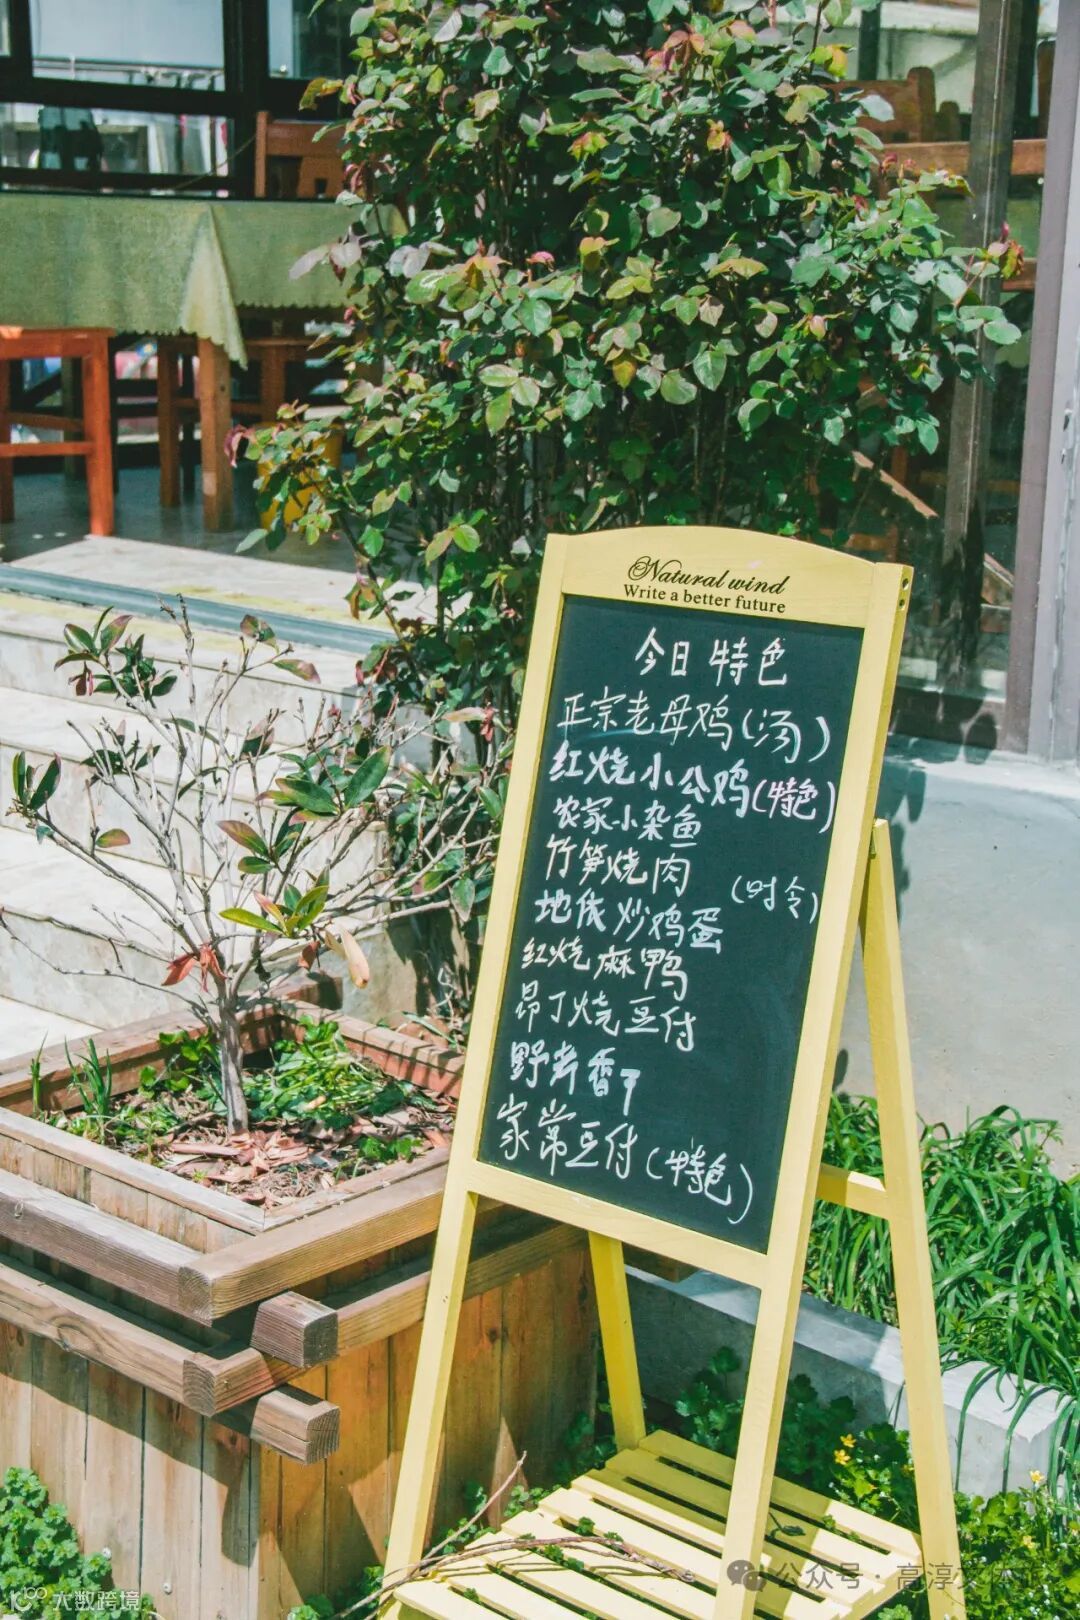 Natural wind
Write a better future
今日特色
正宗老母鸡(汤)
红烧小公鸡(特色)
农家小杂鱼
竹笋烧肉
(时令)
地依炒鸡蛋
红烧麻鸭
昂丁烧豆付
野芹香干
家常豆付(特色)
大数跨境
公众号·高淳文体旅